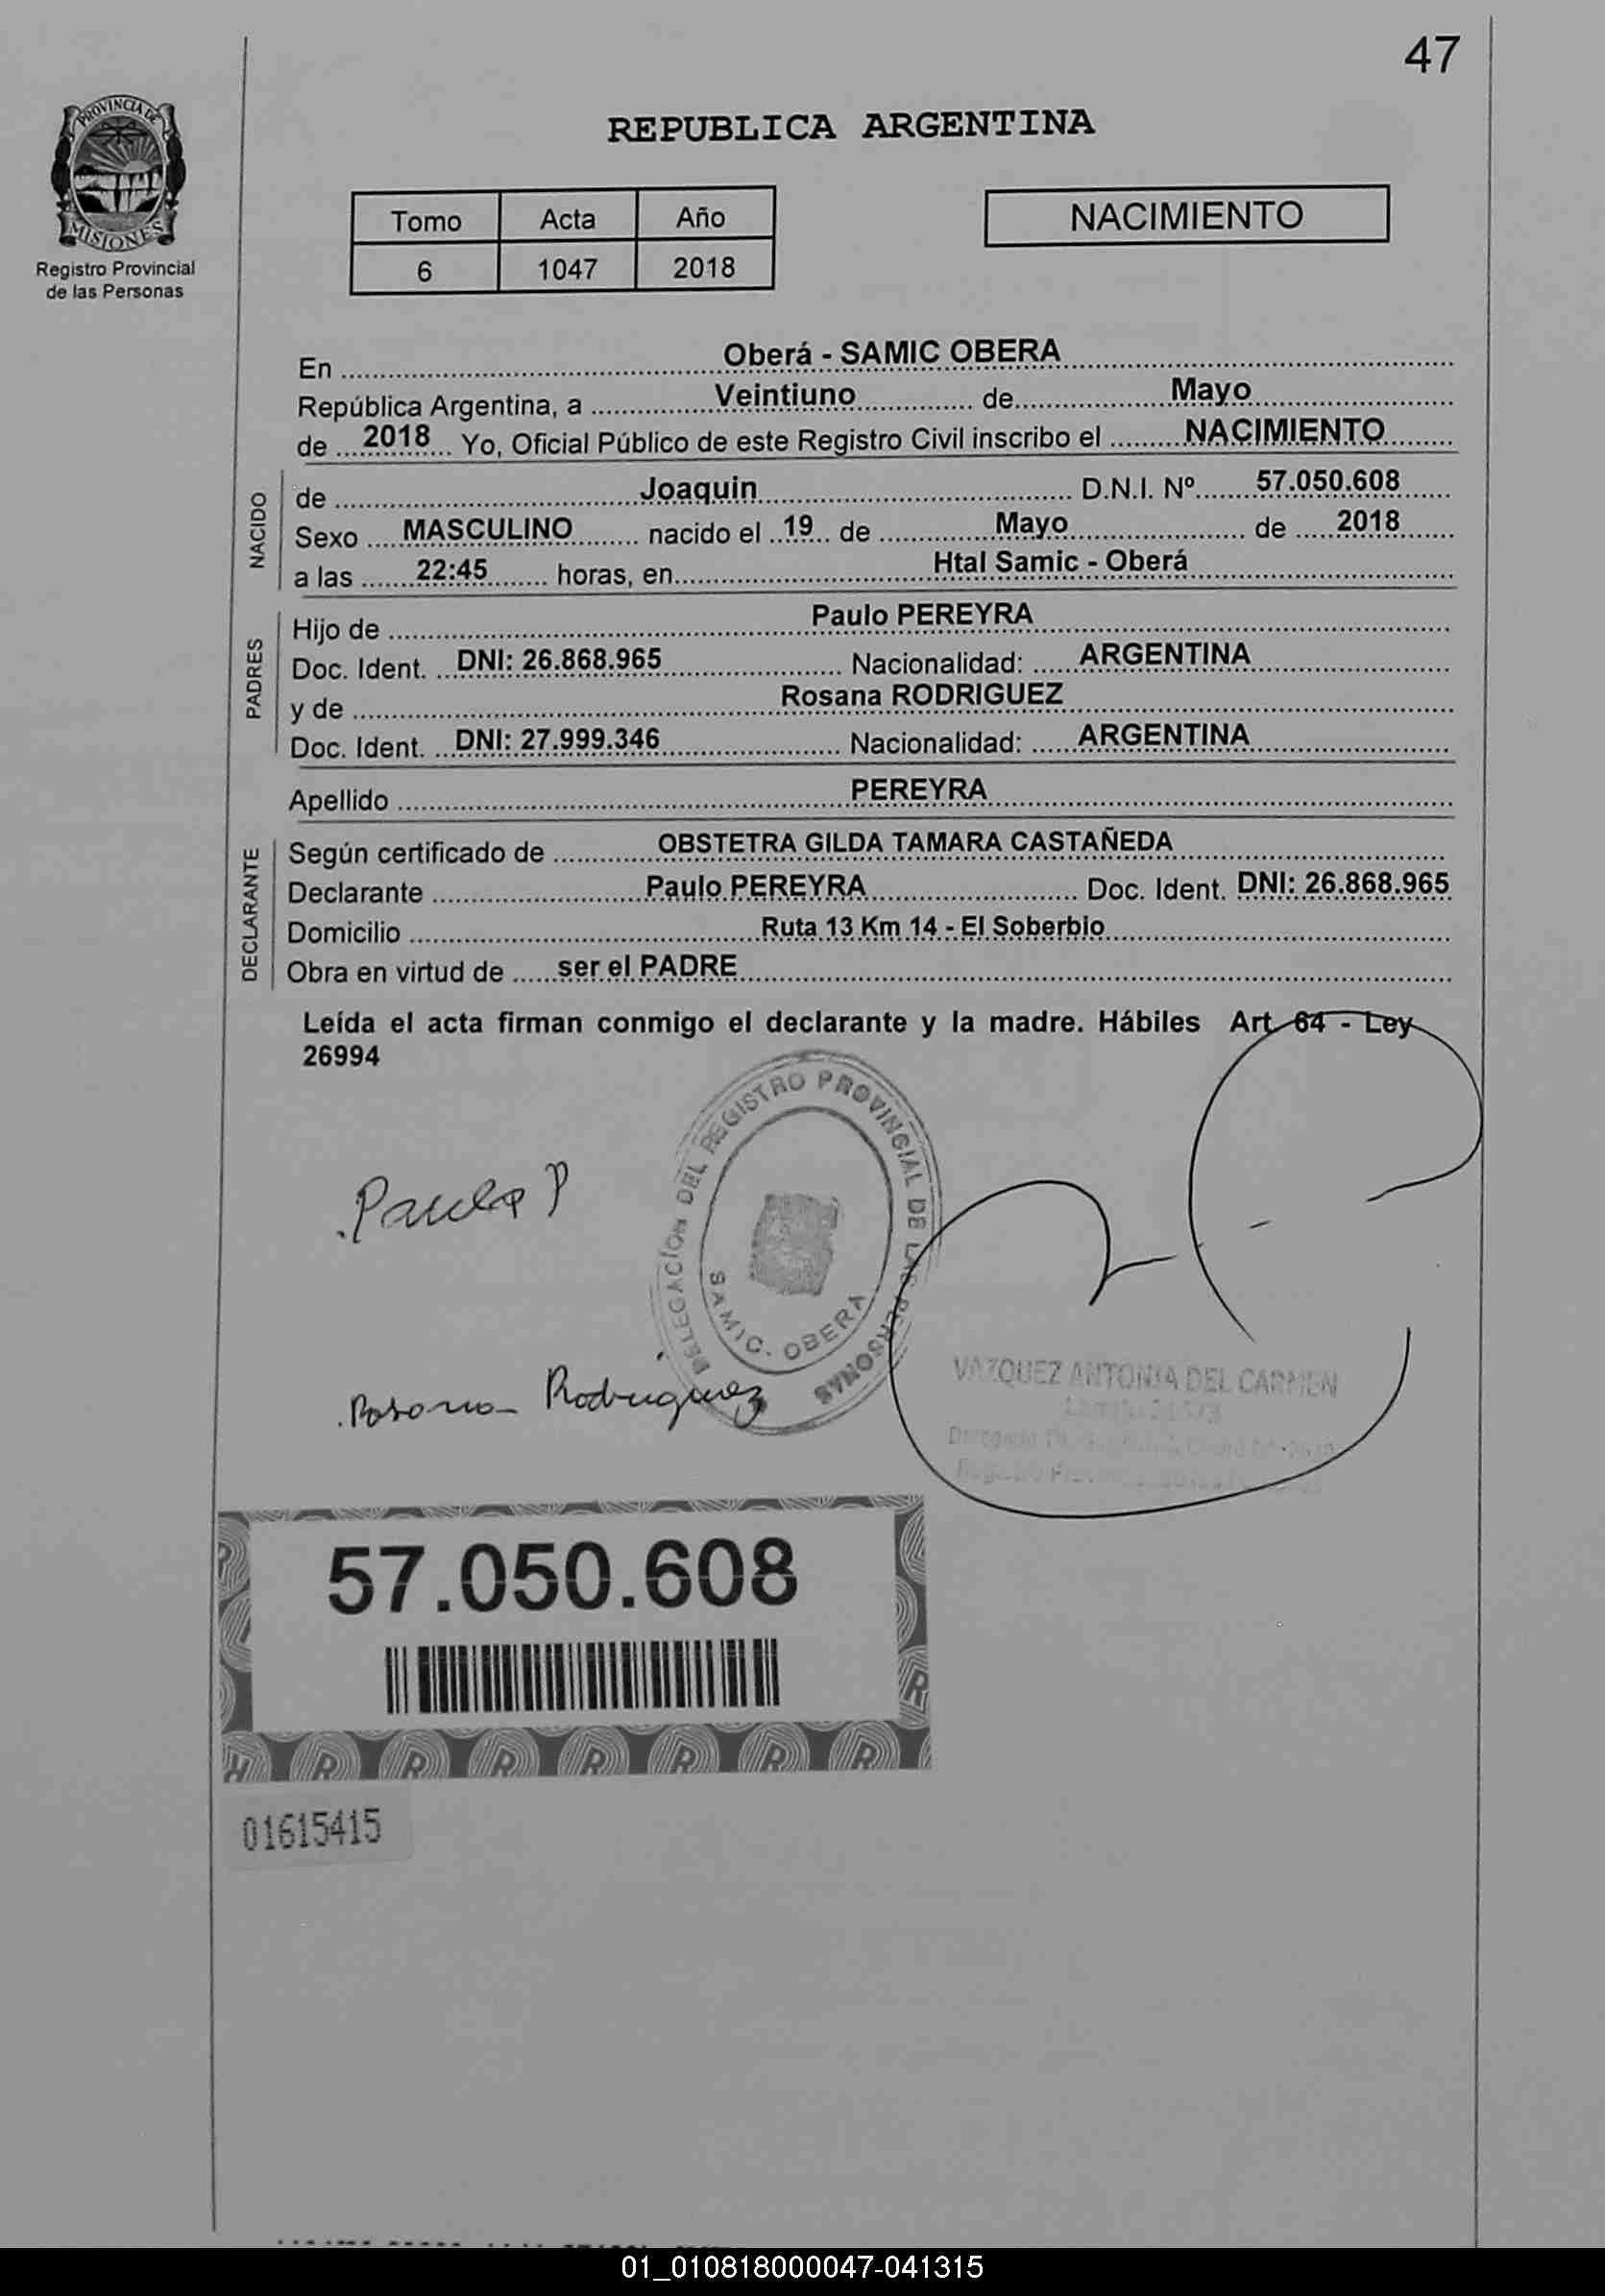 47
PROVINCIA DE
MISIONES
Registro Provincial
de las Personas
REPUBLICA ARGENTINA
Tomo Acta Año
6 1047 2018
NACIMIENTO
En Oberá - SAMIC OBERA
República Argentina, a Veintiuno de Mayo
de 2018 Yo, Oficial Público de este Registro Civil inscribo el NACIMIENTO
NACIDO
de Joaquin D.N.I. Nº 57.050.608
Sexo MASCULINO nacido el 19 de Mayo de 2018
a las 22:45 horas, en Htal Samic - Oberá
PADRES
Hijo de Paulo PEREYRA
Doc. Ident. DNI: 26.868.965 Nacionalidad: ARGENTINA
y de Rosana RODRIGUEZ
Doc. Ident. DNI: 27.999.346 Nacionalidad: ARGENTINA
Apellido PEREYRA
DECLARANTE
Según certificado de OBSTETRA GILDA TAMARA CASTAÑEDA
Declarante Paulo PEREYRA Doc. Ident. DNI: 26.868.965
Domicilio Ruta 13 Km 14 - El Soberbio
Obra en virtud de ser el PADRE
Leída el acta firman conmigo el declarante y la madre. Hábiles Art. 64 - Ley
26994
DELEGACION DEL REGISTRO PROVINCIAL DE LAS PERSONAS
SAMIC. OBERA
Paulo P
Rosana Rodriguez
VAZQUEZ ANTONIA DEL CARMEN
57.050.608
01615415
01_010818000047-041315